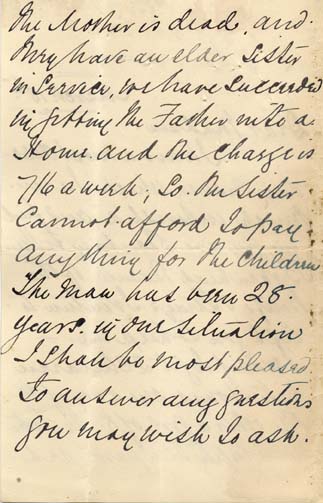 The Mother is dead, and.
They have an elder Sister
in Service, we have Succeeded
in getting the Father into a
Home. and the charge is
7/6 a week; So. the Sister
Cannot. afford to pay
anything for the Children
The Man has been 28.
years. in one situation
I shall be most pleased.
to answer any questions
you may wish to ask.